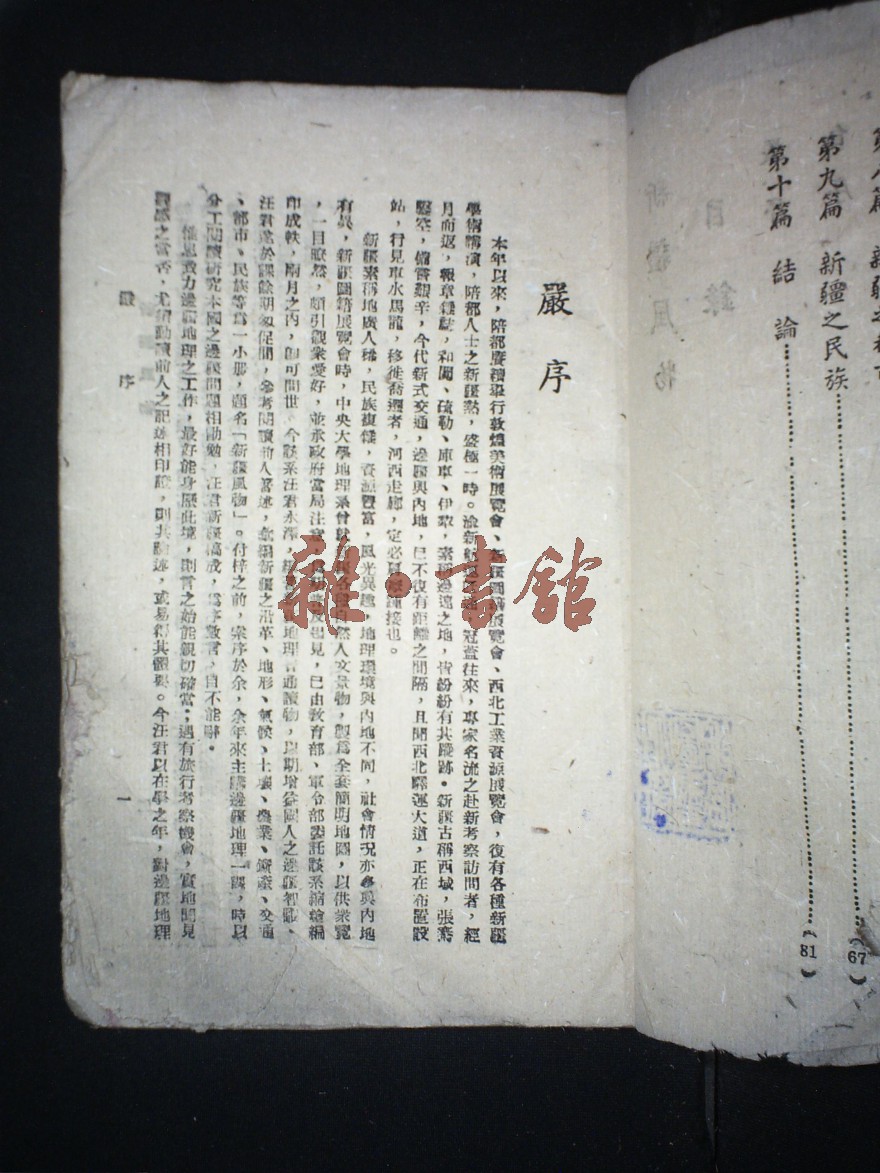 第九篇　新疆之民族……(67)
第十篇　結論……(81)
嚴序
本年以來，陪都賡續舉行敦煌美術展覽會、新疆圖籍展覽會、西北工業資源展覽會，復有各種新疆
學術講演，陪都人士之新疆熱，盛極一時。渝新航，冠蓋往來，專家名流之赴新考察訪問者，經
月而返，報章，和闐、疏勒、庫車、伊犂，素稱邊遠之地，皆紛紛有其蹤跡。新疆古稱西域，張騫
鑿空，備嘗艱辛，今代新式交通，邊疆與內地，已不復有距離之間隔，且聞西北驛運大道，正在布置設
站，行見車水馬龍，移徙喬遷者，河西走廊，定必接也。
新疆素稱地廣人稀，民族複雜，資源豐富，風光異趣，地理環境與內地不同，社會情況亦多與內地
有異，新疆圖籍展覽會時，中央大學地理系曾就各自然人文景物，製爲全套簡明地圖，以供衆覽
，一目瞭然，頗引觀衆愛好，並承政府當局注意，見，已由教育部、軍令部委託該系編繪
印成帙，兩月之內，卽可問世。今該系汪君永澤，地理普通讀物，以期增益國人之邊疆智識、
汪君遂於課餘閒匆促間，參考閱讀前人著述，彙編新疆之沿革、地形、氣候、土壤、農業、礦產、交通
、都市、民族等爲一小册，顏名「新疆風物」。付梓之前，索序於余，余年來主講邊疆地理一課，時以
分工閱讀研究本國之邊疆問題相勸勉，汪君新疆稿成，爲序數言，自不能辭。
惟思致力邊疆地理之工作，最好能身歷此境，則言之始能親切確當；遇有旅行考察機會，實地聞見
之當否，尤須動讀前人之記述相印證，則其論述，或易得其體要。今汪君以在學之年，對邊疆地理
嚴序
一
雜·書館